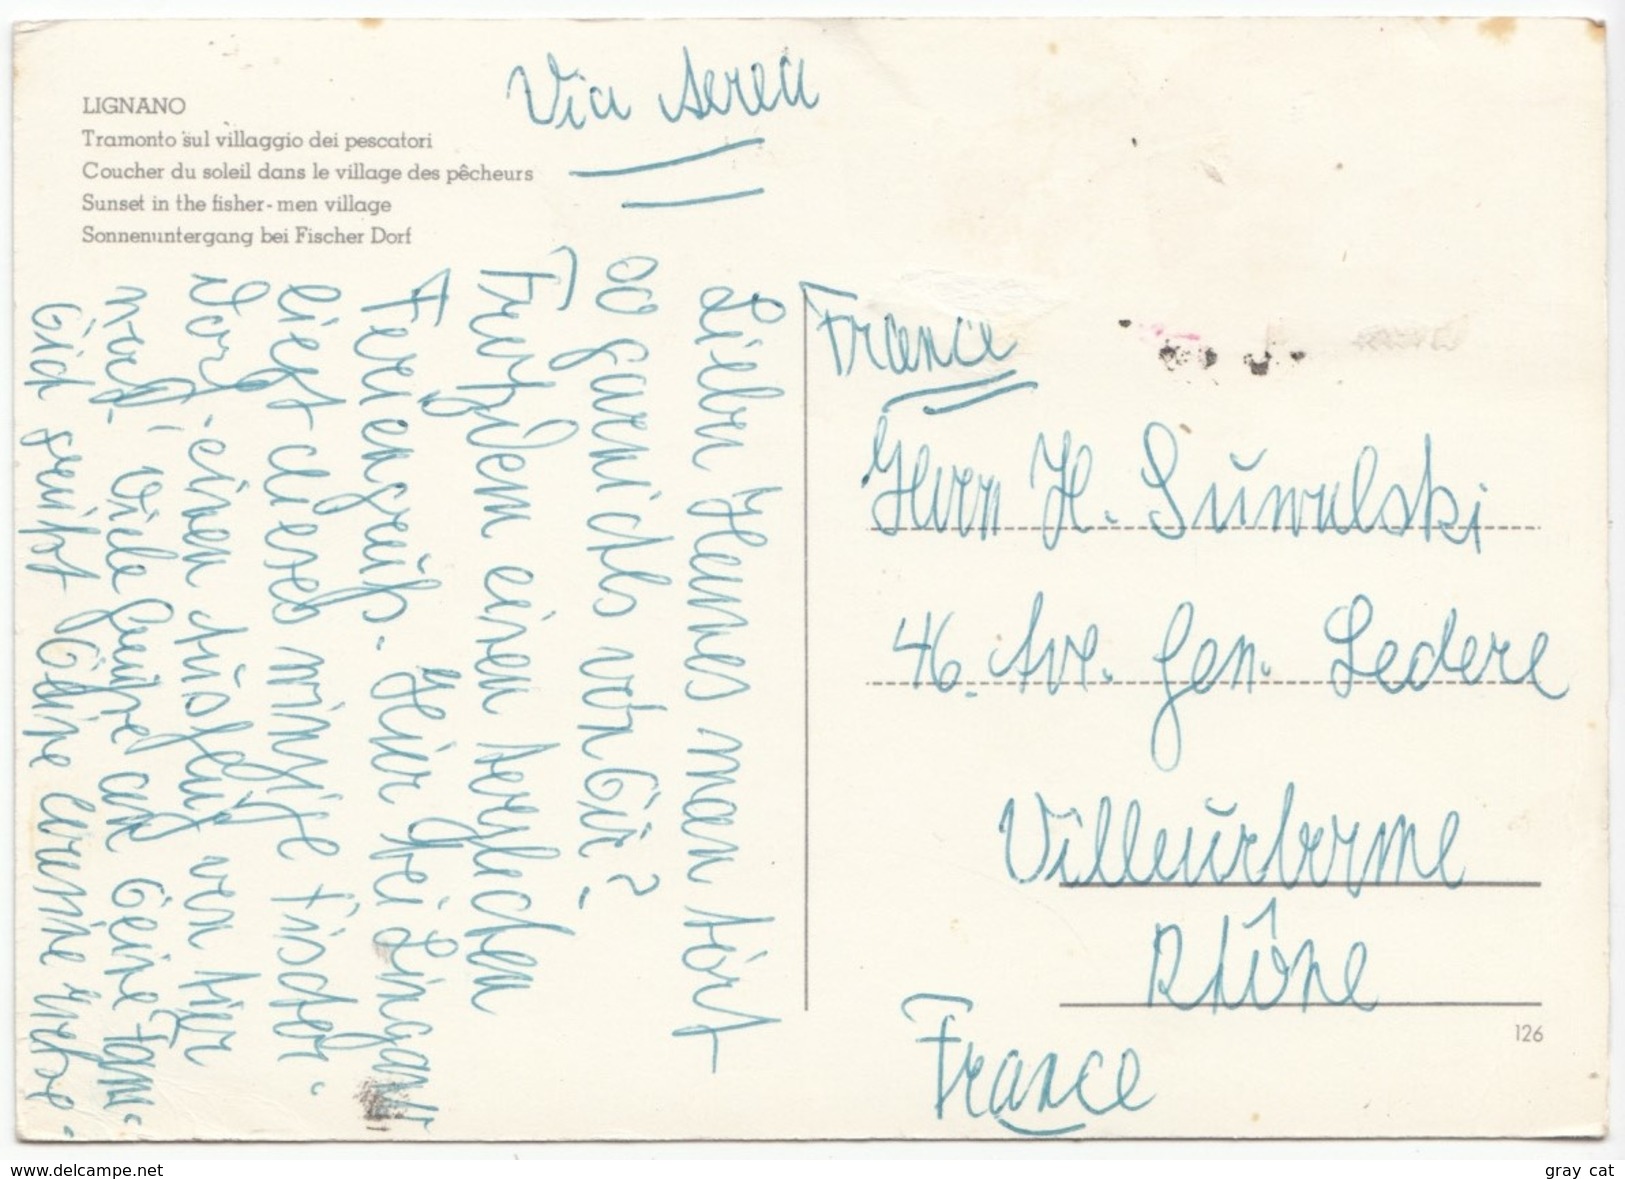 LIGNANO
Tramonto sul villaggio dei pescatori
Coucher du soleil dans le village des pêcheurs
Sunset in the fisher-men village
Sonnenuntergang bei Fischer Dorf
Via Aerea
Lieber Hannes man hört
so garnichts von Dir?
Trotzdem einen herzlichen
Feriengruß. Hier bei Lignano
liegt dieses winzige Fischer-
dorf, einen Ausflug von hier
wert! Viele Grüße an Deine Fam.
Dich grüßt Deine
France
Herrn H. Suwalski
46. Ave. Gen. Leclerc
Villeurbanne
Rhône
France
126
www.delcampe.net
gray cat